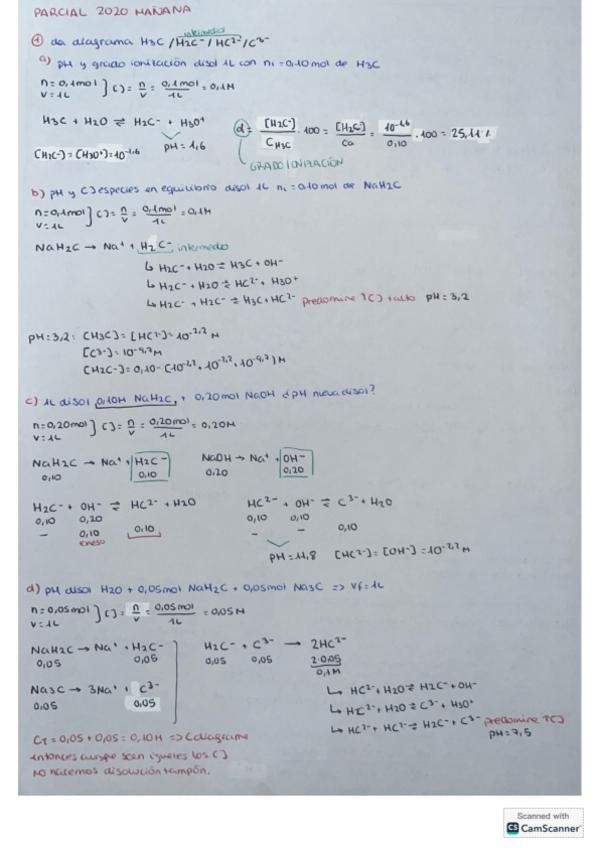 PARCIAL 2020 MAÑANA
intermedio
① da diagrama H3C / H2C⁻ / HC²⁻ / C³⁻
a) pH y grado ionización disol 1L con ni = 0,10 mol de H3C
n = 0,1mol
V = 1L ] [] = n/V = 0,1mol/1L = 0,1M
H3C + H2O ⇌ H2C⁻ + H3O⁺
pH = 1,6
[H2C⁻] = [H3O⁺] = 10^-1,6
α = [H2C⁻]/C H3C · 100 = [H2C]/Ca = 10^-1,6/0,10 · 100 = 25,11 %
GRADO IONIZACIÓN
b) pH y [] especies en equilibrio disol 1L ni = 0,10 mol de NaH2C
n = 0,1mol
V = 1L ] [] = n/V = 0,1mol/1L = 0,1M
NaH2C → Na⁺ + H2C⁻ intermedio
↳ H2C⁻ + H2O ⇌ H3C + OH⁻
↳ H2C⁻ + H2O ⇌ HC²⁻ + H3O⁺
↳ H2C⁻ + H2C⁻ ⇌ H3C + HC²⁻ predomine ↑[] + alto pH = 3,2
pH = 3,2 : [H3C] = [HC²⁻] = 10^-2,2 M
[H2C⁻] = 0,10 -
c) 1L disol 0,10M NaH2C, + 0,20 mol NaOH ¿pH nueva disol?
n = 0,20mol
V = 1L ] [] = n/V = 0,20mol/1L = 0,20M
NaH2C → Na⁺ + H2C⁻ NaOH → Na⁺ + OH⁻
0,10 0,10 0,20 0,20
H2C⁻ + OH⁻ ⇌ HC²⁻ + H2O HC²⁻ + OH⁻ ⇌ C³⁻ + H2O
0,10 0,20 0,10 0,10
- 0,10 0,10 - - 0,10
exceso
pH = 11,8 [HC²⁻] = [OH⁻] = 10^-2,2 M
d) pH disol H2O + 0,05mol NaH2C + 0,05mol Na3C => Vf = 1L
n = 0,05mol
V = 1L ] [] = n/V = 0,05mol/1L = 0,05M
NaH2C → Na⁺ + H2C⁻ H2C⁻ + C³⁻ → 2HC²⁻
0,05 0,05 0,05 0,05 2·0,05
0,1M
Na3C → 3Na⁺ + C³⁻
0,05 0,05
↳ HC²⁻ + H2O ⇌ H2C⁻ + OH⁻
↳ HC²⁻ + H2O ⇌ C³⁻ + H3O⁺
↳ HC²⁻ + HC²⁻ ⇌ H2C⁻ + C³⁻ predomine ↑[]
pH = 7,5
CT = 0,05 + 0,05 = 0,10M => C diagrama
entonces aunque sean iguales los []
no hacemos disolución tampón.
Scanned with
CS CamScanner